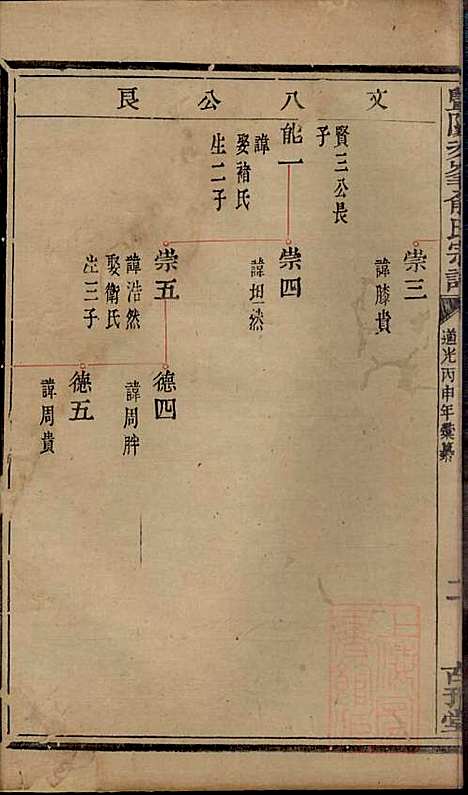 文八公良
崇三
諱滕貴
賢三公長
子
能一
諱
娶褚氏
生二子
崇四
諱坦然
崇五
諱浩然
娶衛氏
生三子
德四
諱周胖
德五
諱周貴
暨陽
俞氏宗譜
道光丙申年彙纂
二
古稀堂